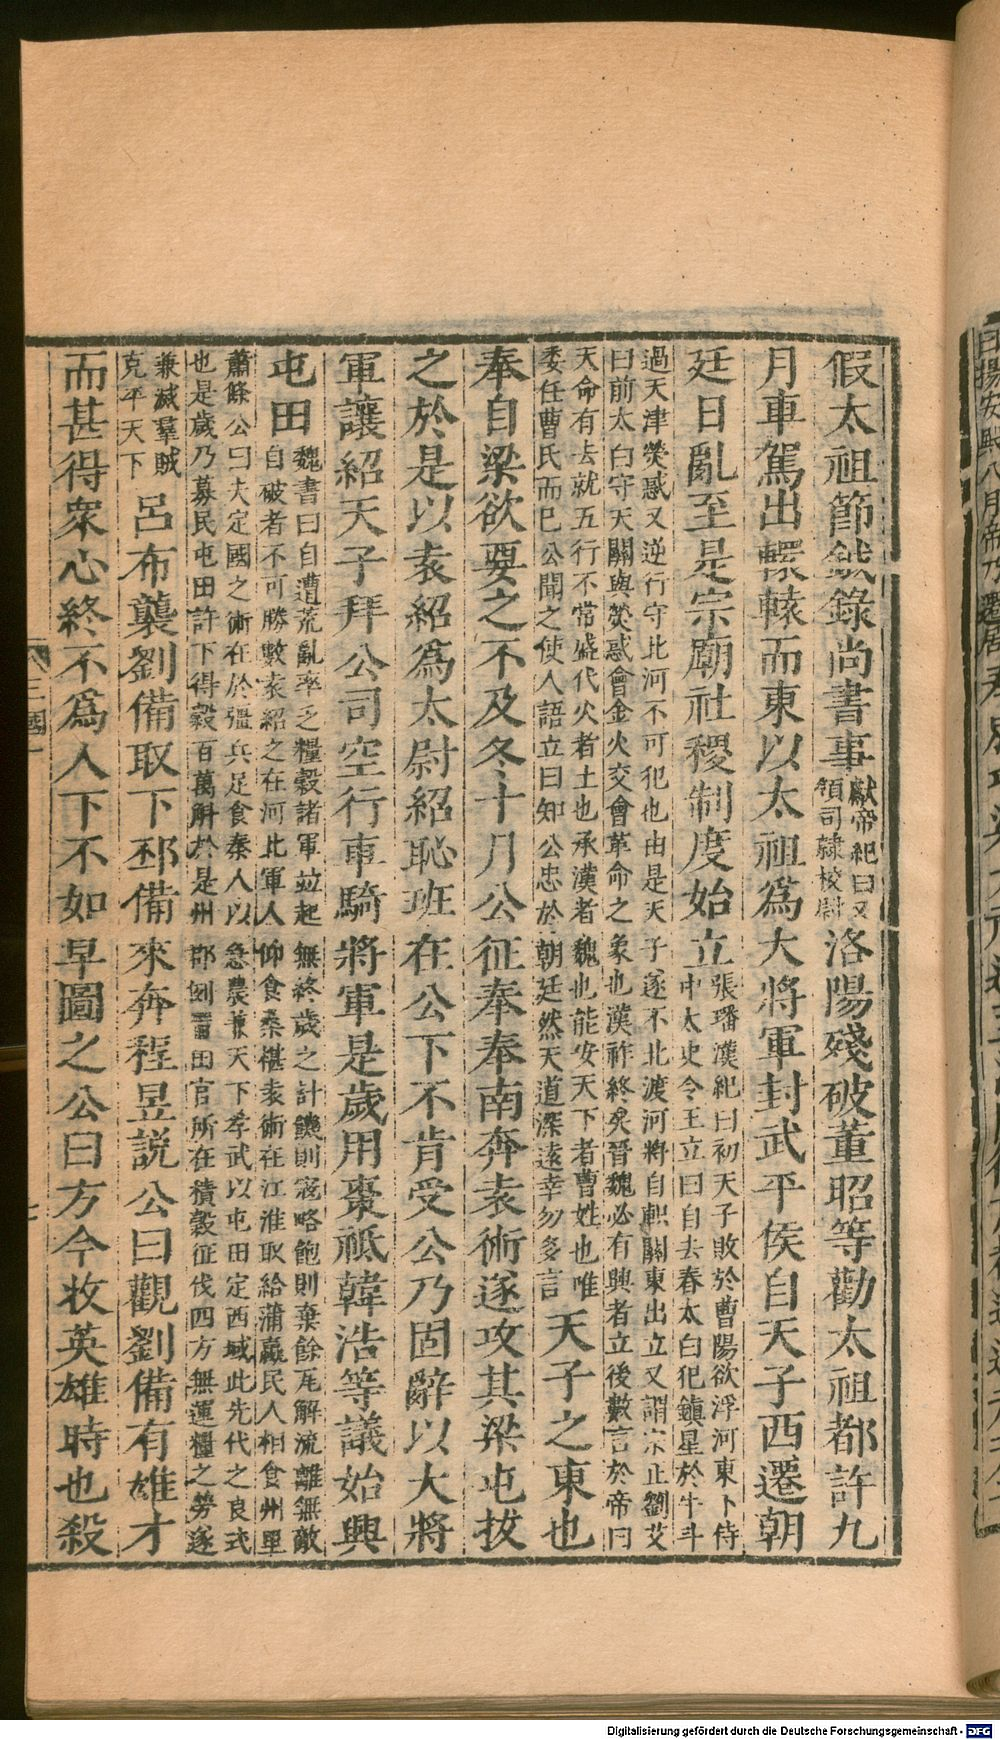 假太祖節鉞錄尚書事獻帝紀曰又領司隸校尉洛陽殘破董昭等勸太祖都許九
月車駕出轘轅而東以太祖爲大將軍封武平侯自天子西遷朝
廷日亂至是宗廟社稷制度始立張璠漢紀曰初天子敗於曹陽欲浮河東下侍
中太史令王立曰自去春太白犯鎮星於牛斗
過天津熒惑又逆行守北河不可犯也由是天子遂不北渡河將自軹關東出立又謂宗正劉艾
曰前太白守天關與熒惑會金火交會革命之象也漢祚終矣晉魏必有興者立後數言於帝曰
天命有去就五行不常盛代火者土也承漢者魏也能安天下者曹姓也唯
委任曹氏而已公聞之使人語立曰知公忠於朝廷然天道深遠幸勿多言天子之東也
奉自梁欲要之不及冬十月公征奉奉南奔袁術遂攻其梁屯拔
之於是以袁紹爲太尉紹恥班在公下不肯受公乃固辭以大將
軍讓紹天子拜公司空行車騎將軍是歲用棗祗韓浩等議始興
屯田魏書曰自遭荒亂率乏糧穀諸軍並起無終歲之計饑則寇略飽則棄餘瓦解流離無敵
自破者不可勝數袁紹之在河北軍人仰食桑椹袁術在江淮取給蒲蠃民人相食州里
蕭條公曰夫定國之術在於彊兵足食秦人以急農兼天下孝武以屯田定西域此先代之良式
也是歲乃募民屯田許下得穀百萬斛於是州郡例置田官所在積穀征伐四方無運糧之勞遂
兼滅羣賊
克平天下呂布襲劉備取下邳備來奔程昱說公曰觀劉備有雄才
而甚得衆心終不爲人下不如早圖之公曰方今收英雄時也殺
三國一
Digitalisierung gefördert durch die Deutsche Forschungsgemeinschaft - DFG